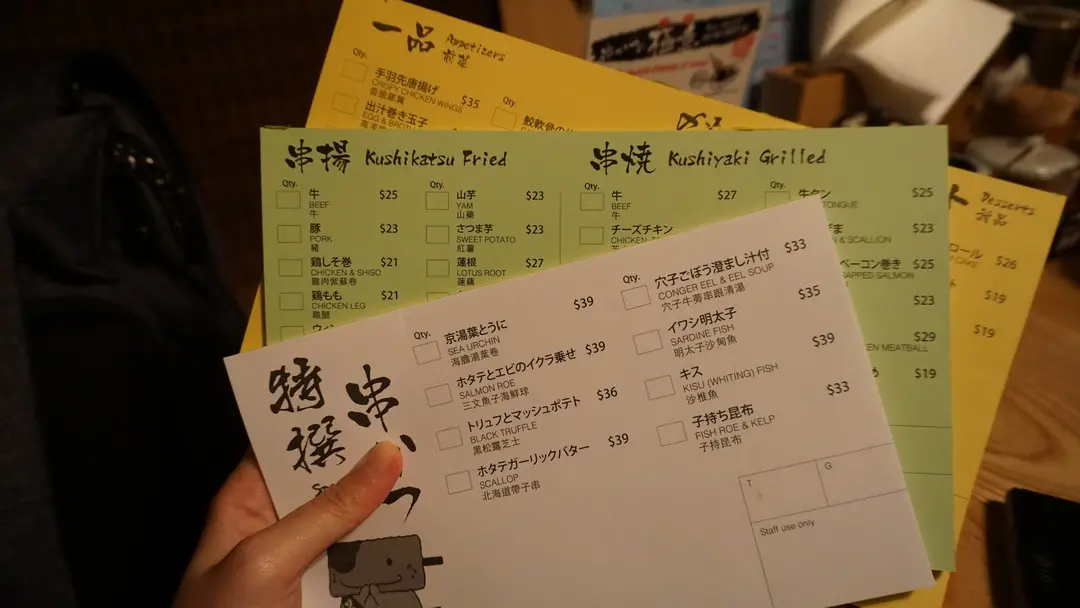 一品 Appetizers
前菜
Qty.
手羽先唐揚げ $35
CRISPY CHICKEN WINGS
出汁巻き玉子
EGG &
Qty.
串揚 Kushikatsu Fried
Qty.
牛 $25
BEEF
牛
豚 $23
PORK
豬
鶏しそ巻 $21
CHICKEN & SHISO
雞肉紫蘇卷
鶏もも $21
CHICKEN LEG
雞腿
Qty.
山芋 $23
YAM
山藥
さつま芋 $23
SWEET POTATO
紅薯
蓮根 $27
LOTUS ROOT
蓮藕
串焼 Kushiyaki Grilled
Qty.
牛 $27
BEEF
牛
チーズチキン
Qty.
牛タン $25
TONGUE
$23
& SCALLION
ベーコン巻き $25
SALMON
$23
$29
MEATBALL
$19
Desserts
甜品
ロール $26
CAKE
$19
$19
特撰
串かつ
Qty.
京湯葉とうに $39
SEA URCHIN
海膽湯葉卷
ホタテとエビのイクラ乗せ $39
SALMON ROE
三文魚子海鮮球
トリュフとマッシュポテト $36
BLACK TRUFFLE
黒松露芝士
ホタテガーリックバター $39
SCALLOP
北海道帶子串
Qty.
穴子ごぼう澄まし汁付 $33
CONGER EEL & EEL SOUP
穴子牛蒡串跟清湯
イワシ明太子 $35
SARDINE FISH
明太子沙甸魚
キス $39
KISU (WHITING) FISH
沙椎魚
子持ち昆布 $33
FISH ROE & KELP
子持昆布
T G
Staff use only